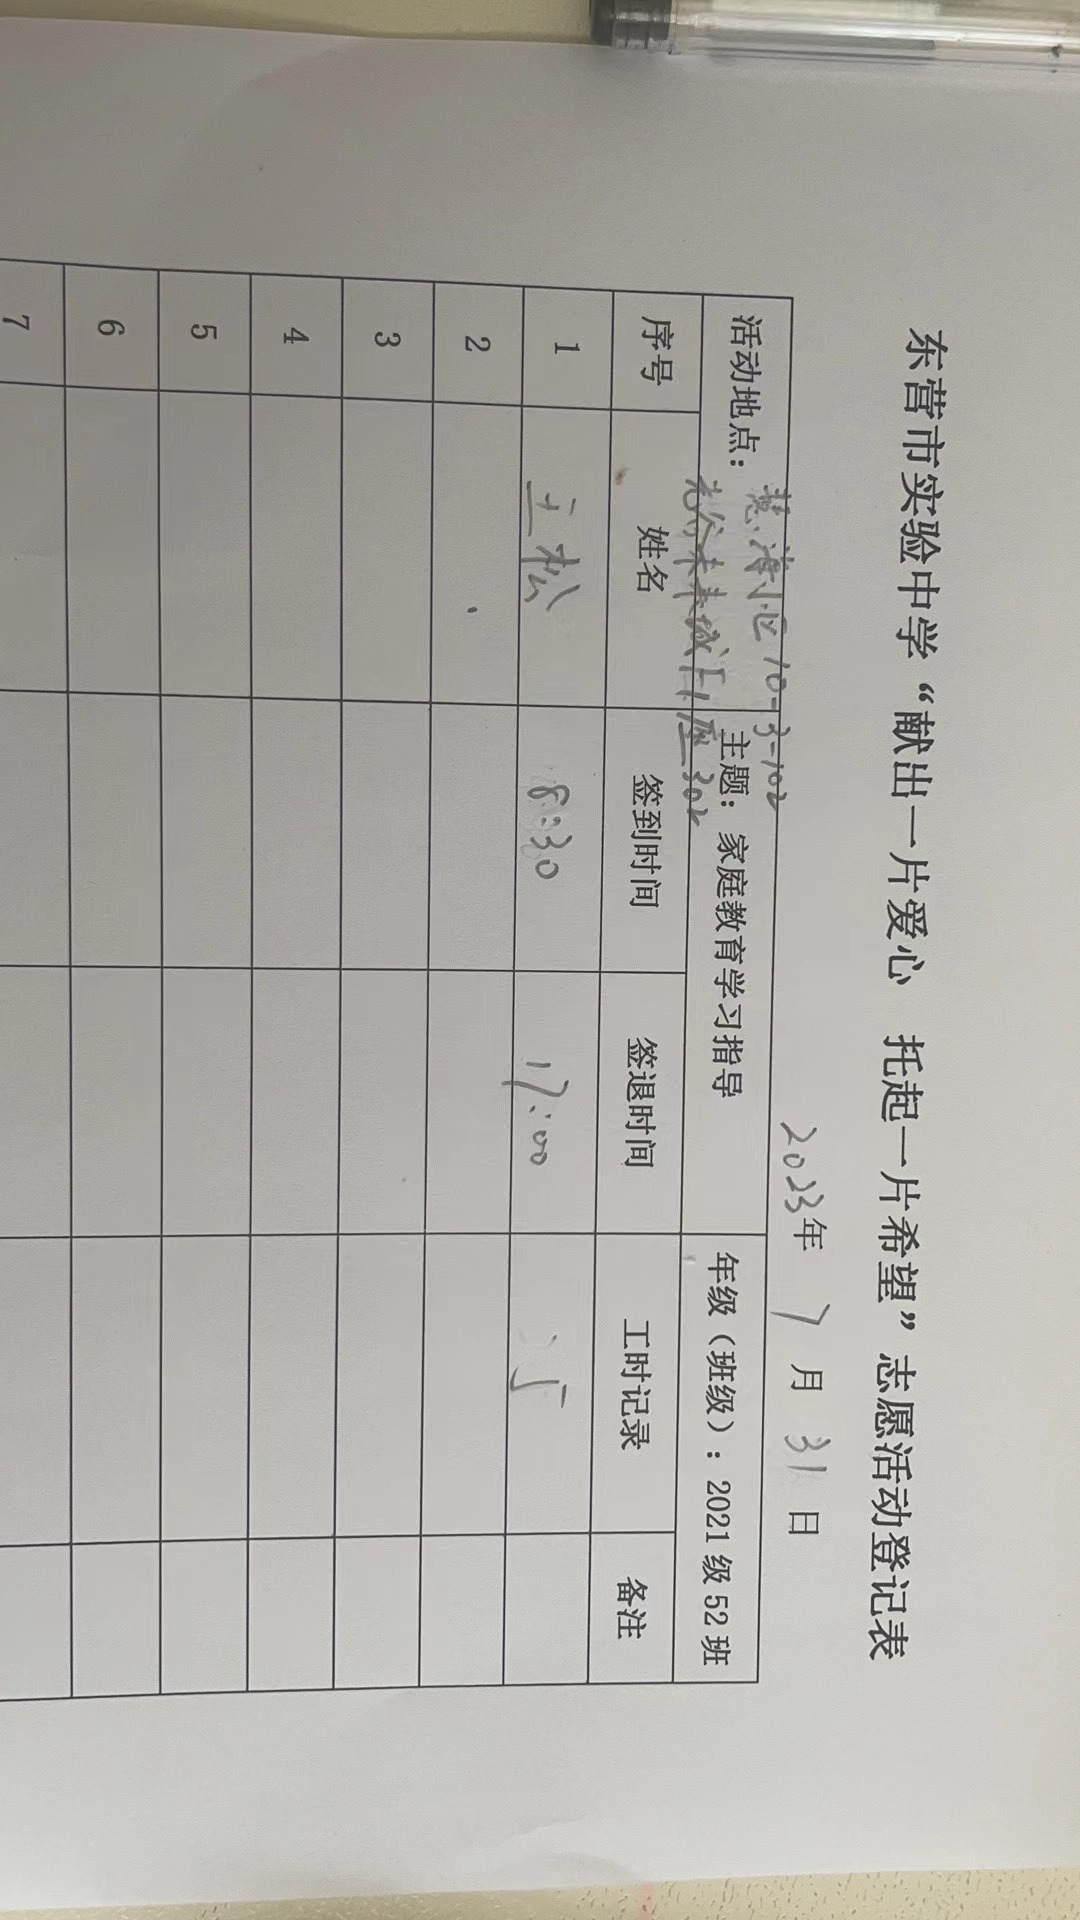 东营市实验中学“献出一片爱心 托起一片希望”志愿活动登记表
2023年 7 月 31 日
活动地点: 小区10-3-102 主题: 家庭教育学习指导 年级（班级）: 2021级52班
光谷未来城E1座302
序号 姓名 签到时间 签退时间 工时记录 备注
1 王松 8:30 17:00
2
3
4
5
6
7